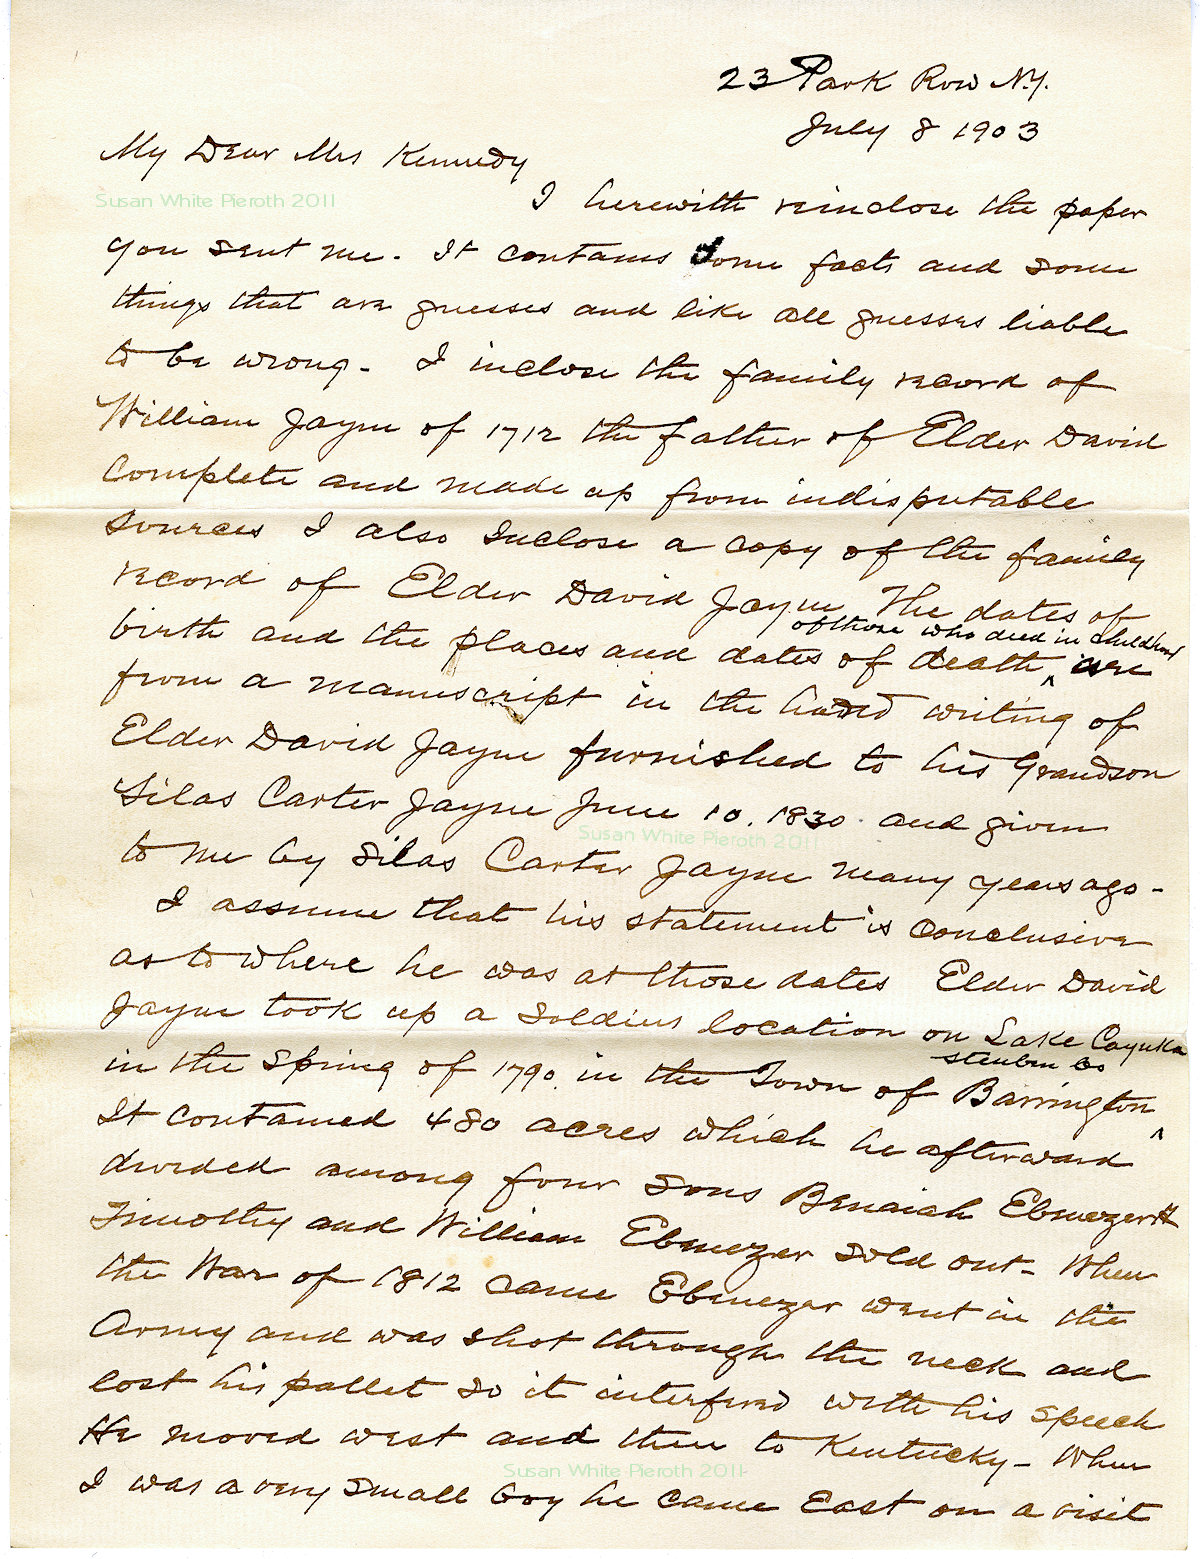 23 Park Row N.Y.
July 8 1903
My Dear Mrs Kennedy
Susan White Pieroth 2011
I herewith reinclose the paper
you sent me. It contains some facts and some
things that are guesses and like all guesses liable
to be wrong - I inclose the family record of
William Jayne of 1712 the father of Elder David
Complete and made up from indisputable
Sources I also Inclose a copy of the family
record of Elder David Jayne The dates of
of those who died in childhood
birth and the places and dates of death ^ are
from a manuscript in the hand writing of
Elder David Jayne furnished to his Grandson
Silas Carter Jayne June 10, 1830 and given
Susan White Pieroth 2011
to me by Silas Carter Jayne many years ago -
I assume that his statement is conclusive
as to where he was at those dates Elder David
Jayne took up a Soldiers location on Lake Cayuka
Steuben Co
in the Spring of 1790 in the Town of Barrington ^
It contained 480 acres which he afterward
divided among four Sons Benaiah Ebenezer
Timothy and William Ebenezer Sold out - When
the War of 1812 came Ebenezer went in the
Army and was shot through the neck and
lost his pallet so it interfered with his Speech
He moved west and then to Kentucky - When
Susan White Pieroth 2011
I was a very Small boy he came East on a visit